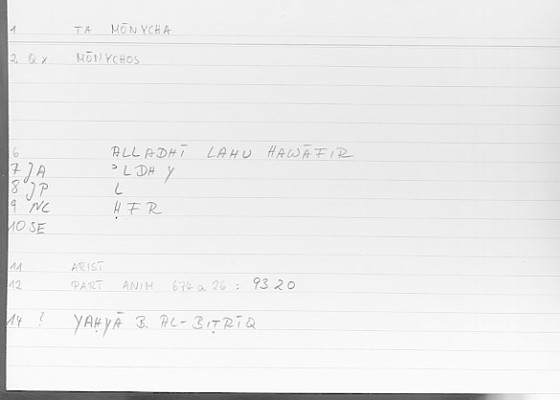 1 TA MŌNYCHA
2 QX MŌNYCHOS
6 ALLADHĪ LAHU HAWĀFIR
7 JA ᵓLDHY
8 JP L
9 NC ḤFR
10 SE
11 ARIST
12 PART ANIM 674a26: 9320
14 ! YAḤYĀ B. AL-BIṬRĪQ